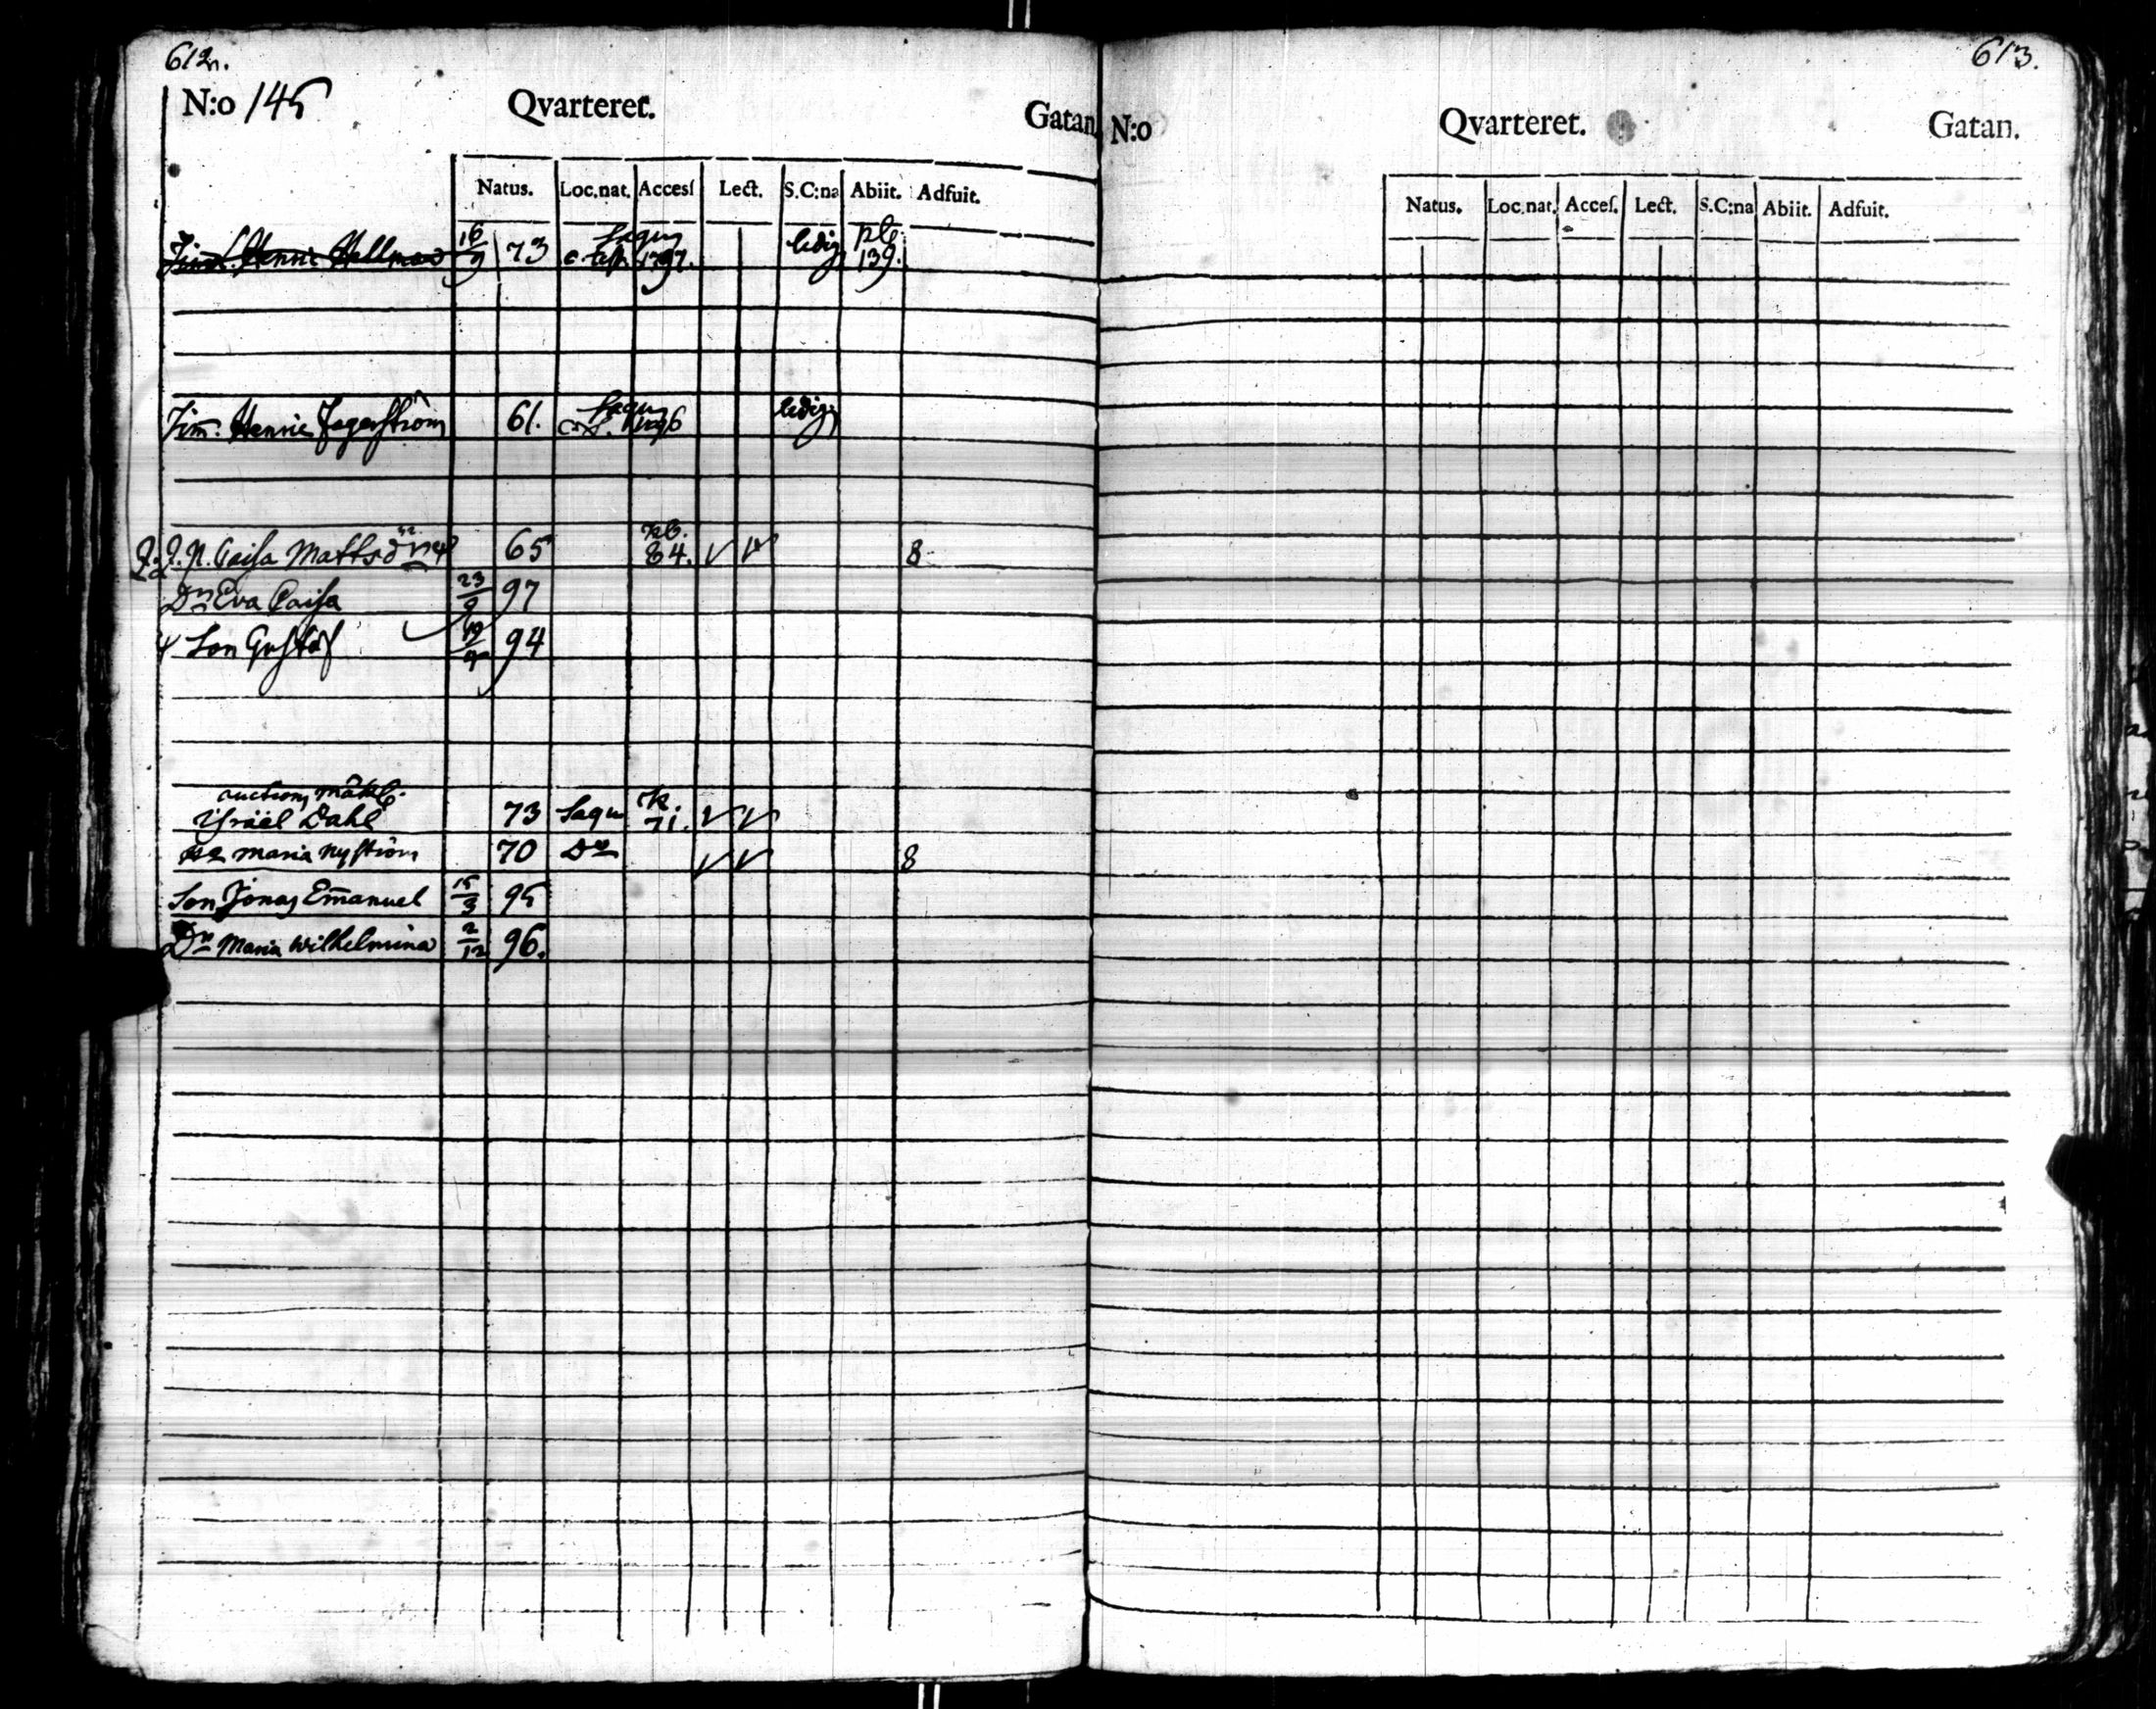 612.
N:o 145 Qvarteret. Gatan.
Natus. Loc.nat. Accesſ Lect. S.C:na Abiit. Adfuit.
Henric Hellman 16/9 73 1797. ledig pb. 139.
Tim. Henric Fagerström 61. 1796 ledig
Caisa Mattsdr 65 kb. 84. 8
Dr Eva Caisa 23/9 97
Son Gustaf 19/9 94
auctions
Israël Dahl 73 k. 71.
Maria Nyström 70 Do 8
Son Jonas Em̄anuel 15/3 95
Dr Maria Wilhelmina 2/12 96.
613.
N:o Qvarteret. Gatan.
Natus. Loc.nat. Acceſ. Lect. S.C:na Abiit. Adfuit.